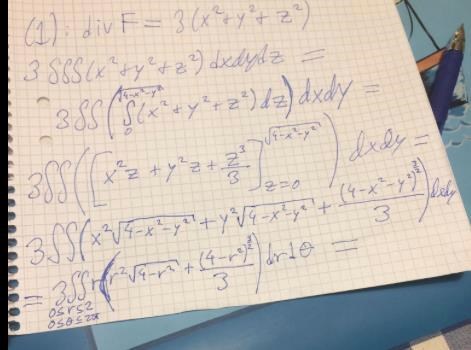 (1): div F = 3(x²+y²+z²)
3∭(x²+y²+z²)dxdydz =
3∬(∫₀^√(4-x²-y²) (x²+y²+z²)dz)dxdy =
3∬([x²z + y²z + z³/3]_{z=0}^{√(4-x²-y²)}) dxdy =
3∬(x²√(4-x²-y²) + y²√(4-x²-y²) + (4-x²-y²)^{3/2}/3)dxdy
= 3∬r(r²√(4-r²) + (4-r²)^{3/2}/3)drdθ =
0≤r≤2
0≤θ≤2π